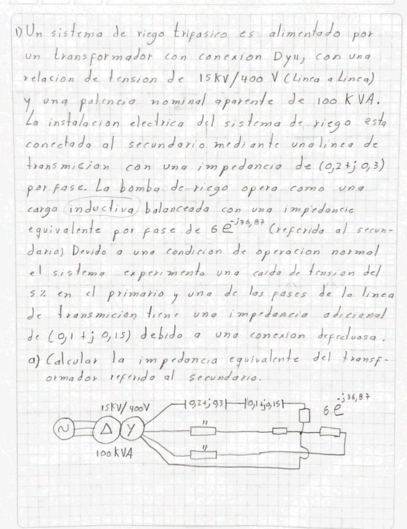 1) Un sistema de riego trifasico es alimentado por
un transformador con conexion Dyn, con una
relacion de tension de 15KV/400 V (Linea a Linea)
y una potencia nominal aparente de 100 KVA.
La instalacion electrica del sistema de riego esta
conectada al secundario mediante una linea de
transmicion con una impedancia de (0,2+j0,3)
por fase. La bomba de riego opera como una
carga inductiva balanceada con una impedancia
equivalente por fase de 6 e^-j36,87 (referida al secun-
dario) Devido a una condicion de operacion normal
el sistema experimenta una caida de tension del
5% en el primario y una de las fases de la linea
de transmicion tiene una impedancia adicional
de (0,1+j0,15) debido a una conexion defectuosa.
a) Calcular la impedancia equivalente del transf-
ormador referida al secundario.
15KV/400V
0,2+j0,3
0,1+j0,15
6·e^-j36,87
Δ
Y
"
"
100 kVA